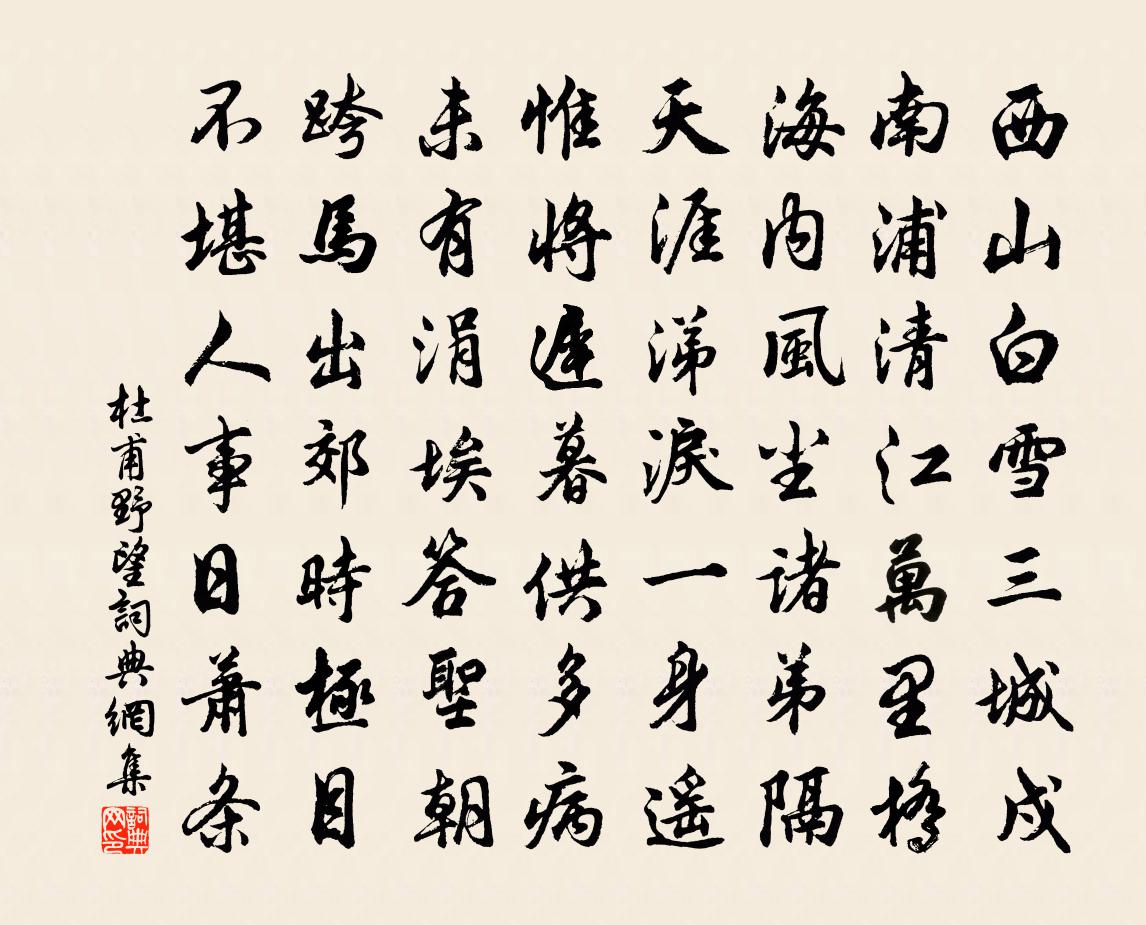 西山白雪三城戍
南浦清江萬里橋
海内風尘諸弟隔
天涯涕淚一身遥
惟將遲暮供多病
未有涓埃答聖朝
跨馬出郊時極目
不堪人事日蕭条
杜甫野望詞典網集
詞典网印